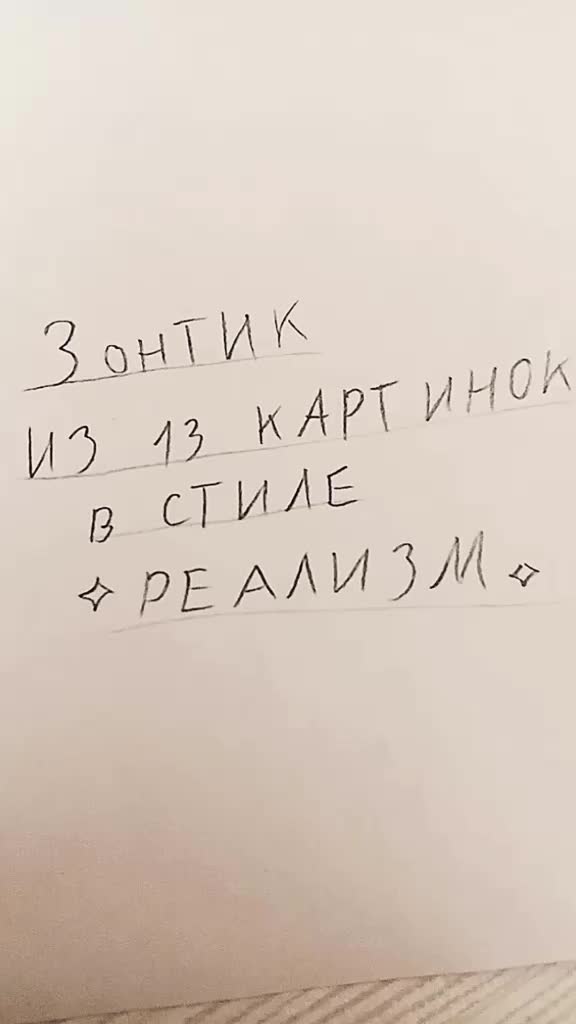 Зонтик
из 13 картинок
в стиле
✧ РЕАЛИЗМ ✧